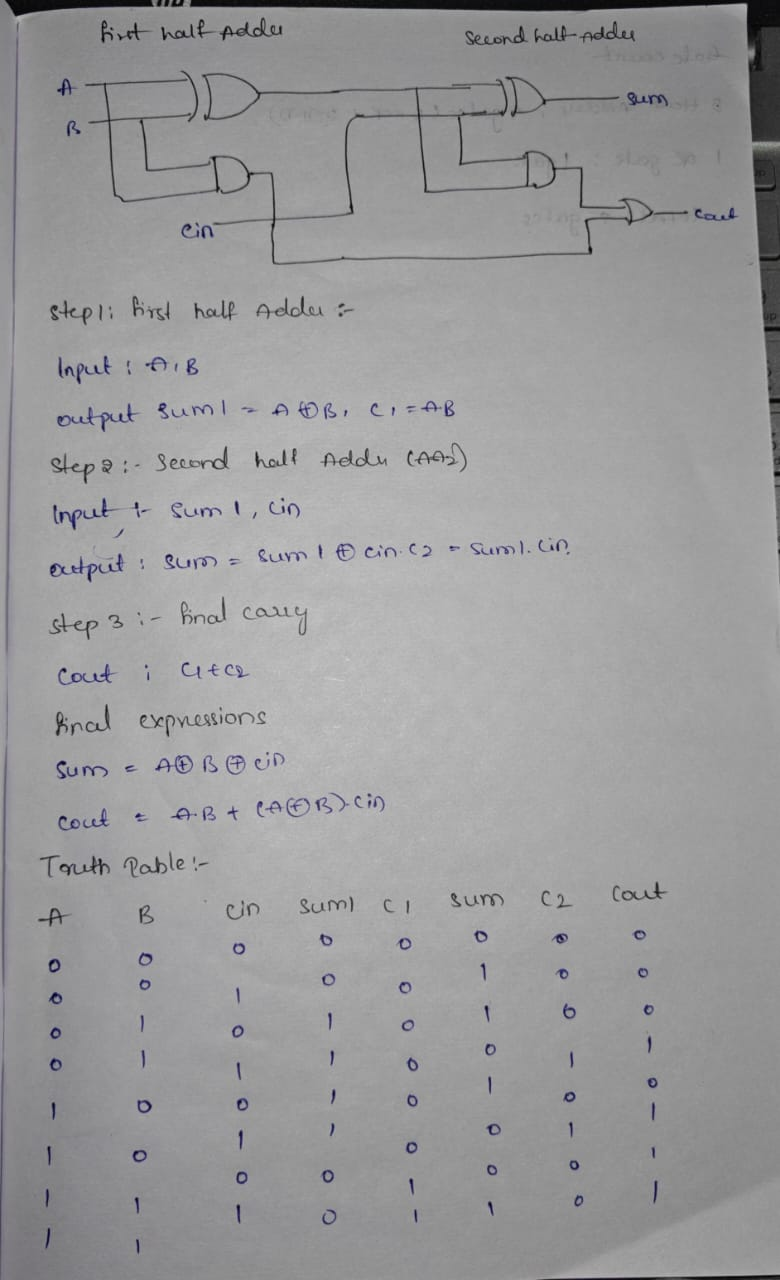 First half Adder Second half Adder
A
B
Sum
Cin
Cout
Step 1: First half Adder :-
Input : A, B
output Sum 1 = A ⊕ B, C1 = AB
Step 2 :- Second half Adder (AA2)
Input :- Sum 1, Cin
output : Sum = Sum 1 ⊕ Cin. C2 = Sum1. Cin.
Step 3 :- Final carry
Cout ; C1 + C2
Final expressions
Sum = A ⊕ B ⊕ Cin
Cout = A.B + (A ⊕ B).Cin
Truth Table :-
A B Cin Sum1 C1 Sum C2 Cout
0 0 0 0 0 0 0 0
0 0 1 0 0 1 0 0
0 1 0 1 0 1 0 0
0 1 1 1 0 0 1 1
1 0 0 1 0 1 0 0
1 0 1 1 0 0 1 1
1 1 0 0 1 0 0 1
1 1 1 0 1 1 0 1